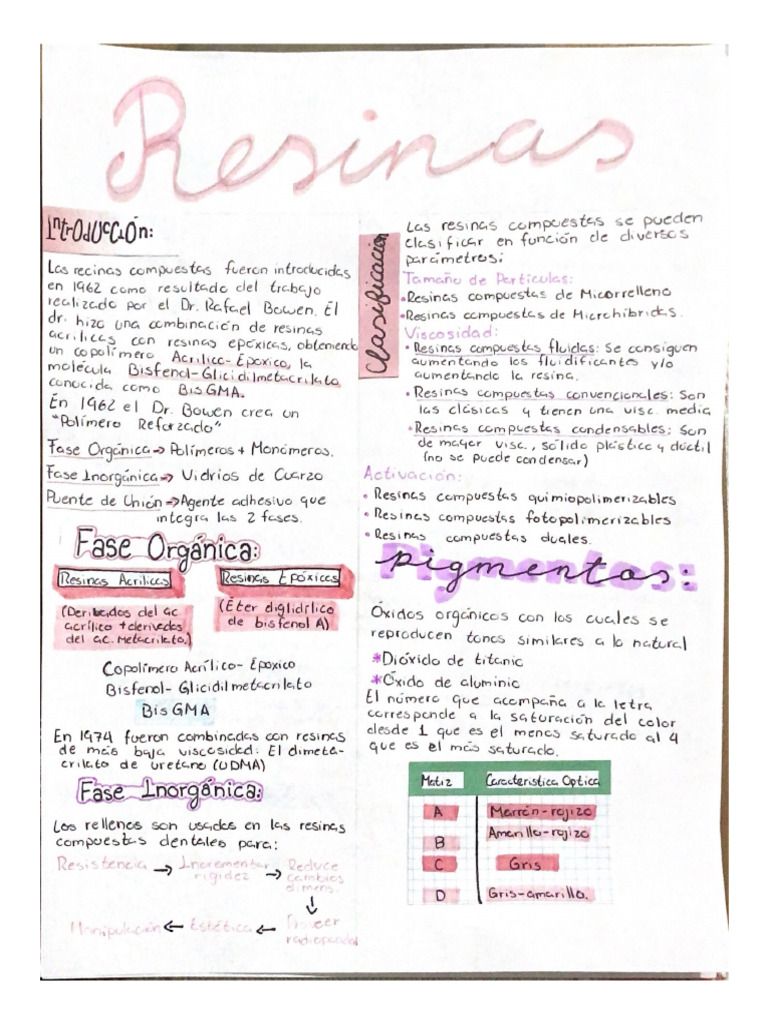 Resinas
IntrOdUcCiÓn:
Las recinas compuestas fueron introducidas
en 1962 como resultado del trabajo
realizado por el Dr. Rafael Bowen. Él
dr. hizo una combinación de resinas
acrílicas con resinas epóxicas, obteniendo
un copolímero Acrílico-Epóxico, la
molécula Bisfenol-Glicidilmetacrilato
conocida como BisGMA.
En 1962 el Dr. Bowen crea un
"Polímero Reforzado"
Fase Orgánica→Polímeros + Monómeros.
Fase Inorgánica→ Vidrios de Cuarzo
Puente de Unión→Agente adhesivo que
integra las 2 fases.
Fase Orgánica:
Resinas Acrílicas Resinas Epóxicas
(Derivados del ac (Éter diglidílico
acrílico + derivados de bisfenol A)
del ac. Metacrilato)
Copolímero Acrílico-Epóxico
Bisfenol-Glicidilmetacrilato
BisGMA
En 1974 fueron combinadas con resinas
de más baja viscosidad: El dimeta-
crilato de uretano (UDMA)
Fase Inorgánica:
Los rellenos son usados en las resinas
compuestas dentales para:
Resistencia → Incrementar rigidez → Reduce cambios dimens.
↓
Manipulación ← Estética ← Proveer radiopacidad
Clasificación
Las resinas compuestas se pueden
clasificar en función de diversos
parámetros:
Tamaño de Partículas:
•Resinas compuestas de Micorrelleno
•Resinas compuestas de Microhíbridas.
Viscosidad:
• Resinas compuestas fluidas: Se consiguen
aumentando los fluidificantes y/o
aumentando la resina.
• Resinas compuestas convencionales: Son
las clásicas y tienen una visc. media
•Resinas compuestas condensables: Son
de mayor visc., sólido plástico y dúctil
(no se puede condensar)
Activación:
• Resinas compuestas quimiopolimerizables
• Resinas compuestas fotopolimerizables
• Resinas compuestas duales.
Pigmentos:
Óxidos orgánicos con los cuales se
reproducen tonos similares a lo natural
*Dióxido de titanic
*Óxido de aluminic
El número que acompaña a la letra
corresponde a la saturación del color
desde 1 que es el menos saturado al 4
que es el más saturado.
Matiz Característica Optica
A Marrón-rojizo
B Amarillo-rojizo
C Gris
D Gris-amarillo.